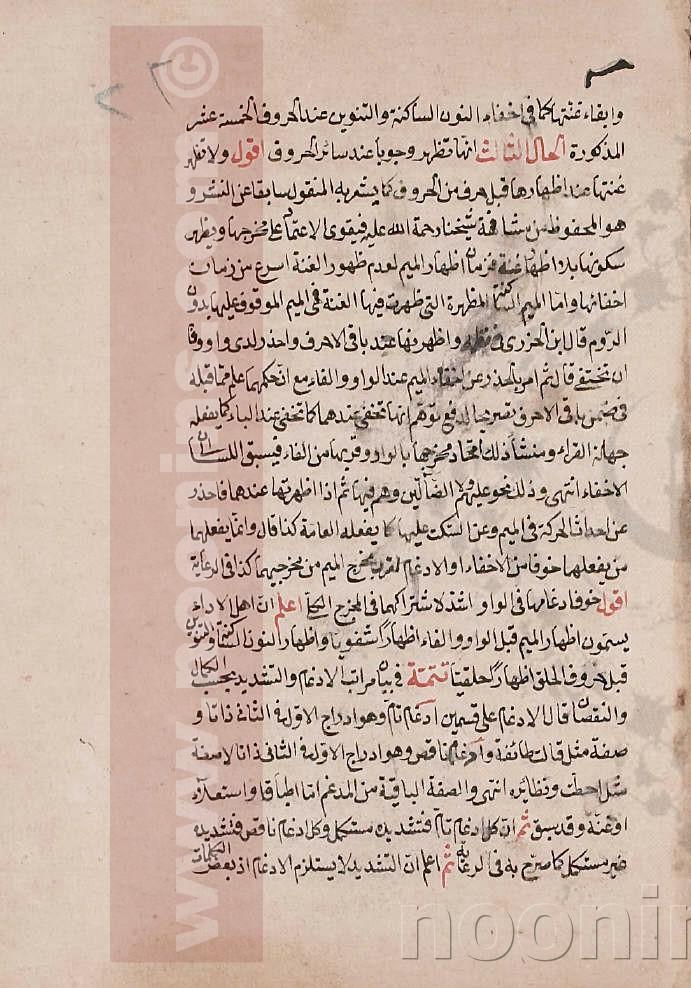 وابقاء غنتها كما فى اخفاء النون الساكنة والتنوين عند الحروف الخمسة عشر
المذكورة الحال الثالث انها تظهر وجوبا عند سائر الحروف اقول ولا تظهر
غنتها عند اظهارها قبل حرف من الحروف كما يشعر به المنقول سابقا عن النشر و
هو المحفوظ من مشافهة شيخنا رحمة الله عليه فيقوى الاعتماد على مخرجها ويظهر
سكونها بلا اظهار غنة فزمان اظهار الميم لعدم ظهور الغنة اسرع من زمان
اخفائها واما الميم الساكنة المظهرة التى ظهرت فيها الغنة فى الميم الموقوف عليها بدون
الروم قال ابن الجزرى فى نظمه واظهرنها عند باقى الاحرف واحذر لدى واو وفا
ان تختفى قال ثم امر بالحذر عن اخفاء الميم عند الواو والفاء مع ان حكمهما علم مما قبله
فى ضمن باقى الاحرف تصريحا لدفع توهم انها تخفى عندهما كما تخفى عند الباء كما يفعله
جهلة القراء ومنشأ ذلك اتحاد مخرجها بالواو وقربها من الفاء فيسبق اللسان الى
الاخفاء انتهى وذلك نحو عليهم ولا الضالين وهم فيها ثم اذا اظهرتها عندهما فاحذر
عن احداث الحركة فى الميم وعن السكت عليها كما يفعله العامة كذا قال وانما يفعلهما
من يفعلهما خوفا من الاخفاء او الادغام لقرب مخرج الميم من مخرجيهما كذا فى الرعاية
اقول خوف ادغامها فى الواو اشد لاشتراكهما فى المخرج الكلى اعلم ان اهل الاداء
يسمون اظهار الميم قبل الواو والفاء اظهارا شفويا واظهار النون الساكنة والتنوين
قبل حروف الحلق اظهارا حلقيا تتمة فى بيان مراتب الادغام والتشديد بحسب الكمال
والنقصان قال الادغام على قسمين ادغام تام وهو ادراج الاول فى الثانى ذاتا و
صفة مثل قالت طائفة وادغام ناقص وهو ادراج الاول فى الثانى ذاتا لا صفة
مثل احطت ونظائره انتهى والصفة الباقية من المدغم اما اطباق او استعلاء
او غنة وقد سبق ثم ان كل ادغام تام فتشديده مستكمل وكل ادغام ناقص فتشديده
غير مستكمل كما صرح به فى الرعاية ثم اعلم ان التشديد لا يستلزم الادغام اذ بعض الكلمات
www.noonine.com ©
noonin